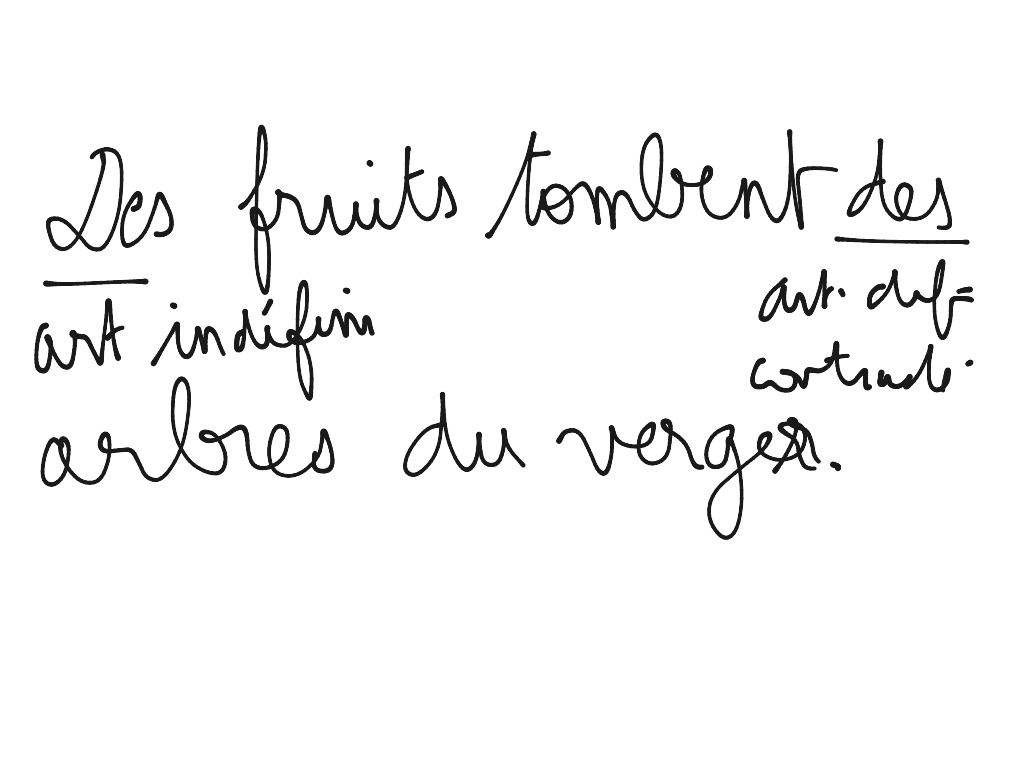 Des fruits tombent des
art indéfini art. def
contracté.
arbres du verger.